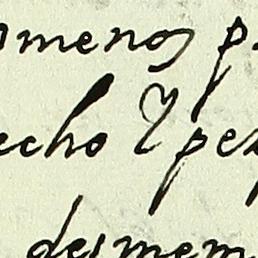 omenos p
echo Y pez
desmem